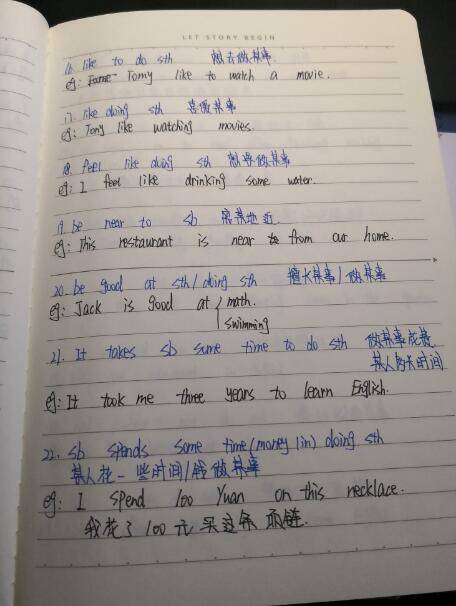 LET STORY BEGIN
16. like to do sth 想去做某事
eg: Tomy like to watch a movie.
17. like doing sth 喜做某事
eg: Tony like watching movies.
18. feel like doing sth 想要做某事
eg: I feel like drinking some water.
19. be near to sb 离某地近
eg: This restaurant is near from our home.
20. be good at sth/doing sth 擅长某事/做某事
eg: Jack is good at { math.
swimming
21. It takes sb some time to do sth 做某事花费
某人多长时间
eg: It took me three years to learn English.
22. sb spends some time(money/in) doing sth
某人花一些时间/钱做某事
eg: I spend 100 Yuan on this necklace.
我花了100元买这条项链.